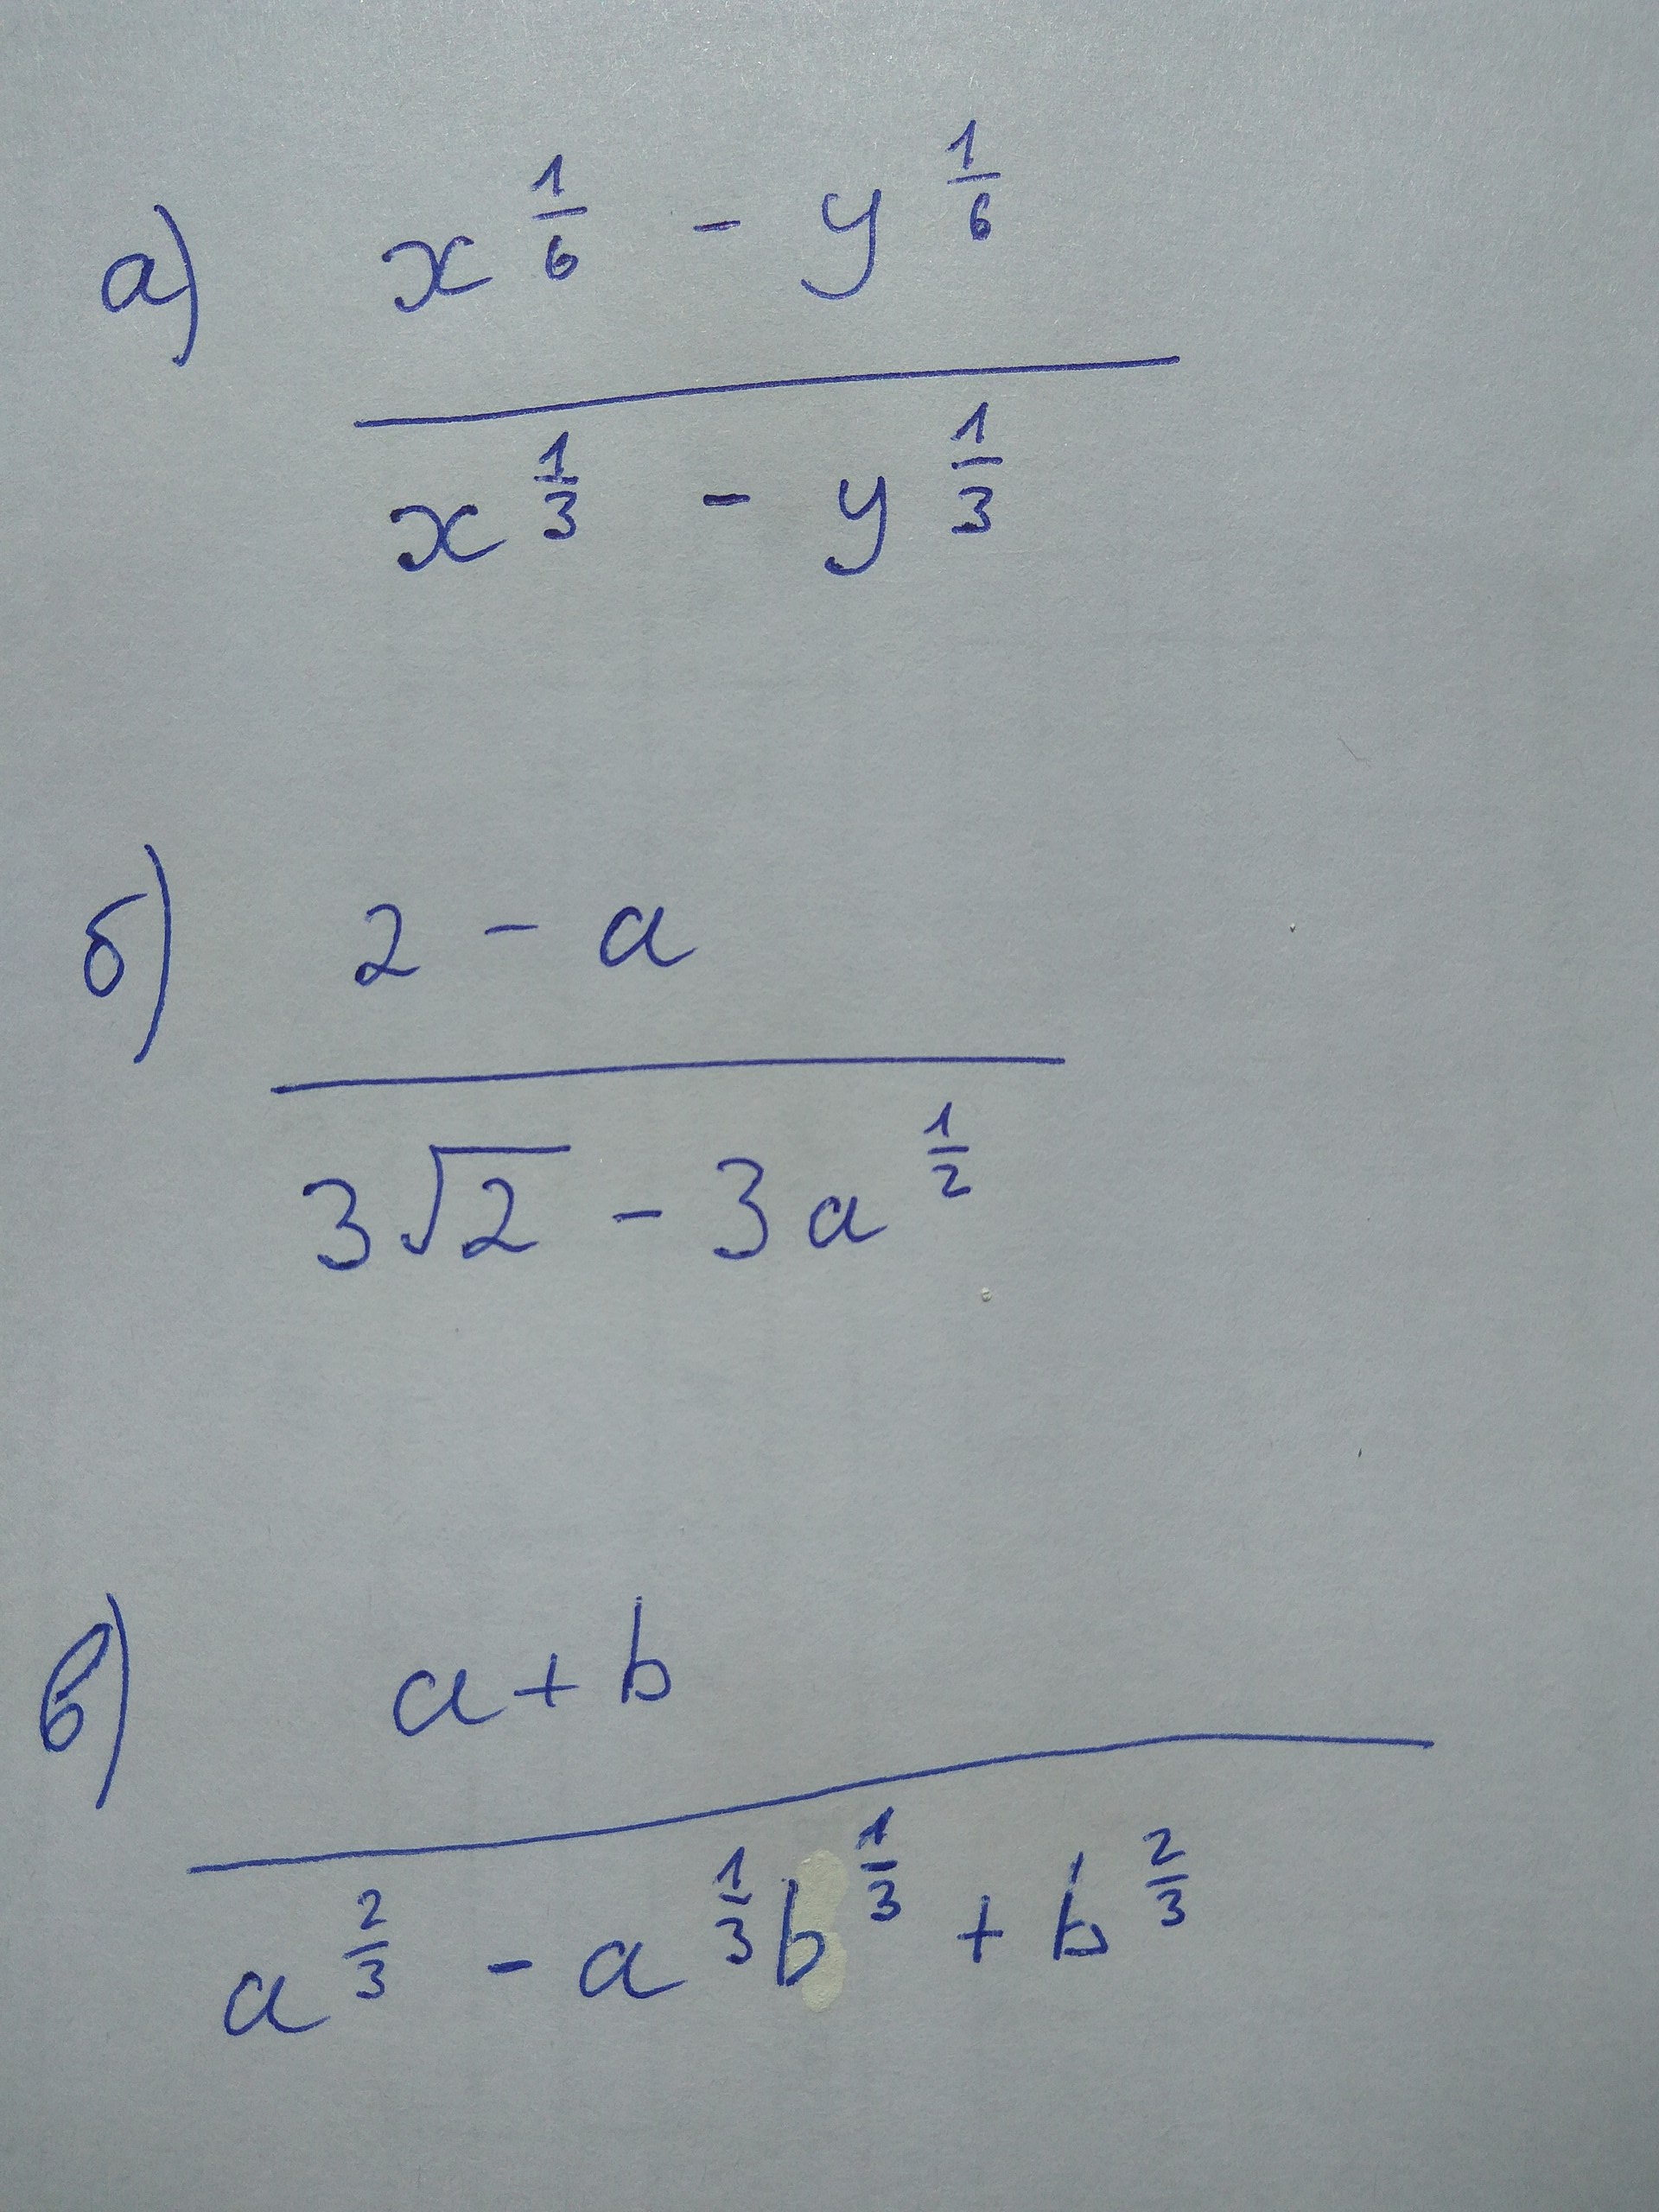 а) x^{\frac{1}{6}} - y^{\frac{1}{6}}
x^{\frac{1}{3}} - y^{\frac{1}{3}}
б) 2 - a
3\sqrt{2} - 3a^{\frac{1}{2}}
в) a + b
a^{\frac{2}{3}} - a^{\frac{1}{3}}b^{\frac{1}{3}} + b^{\frac{2}{3}}